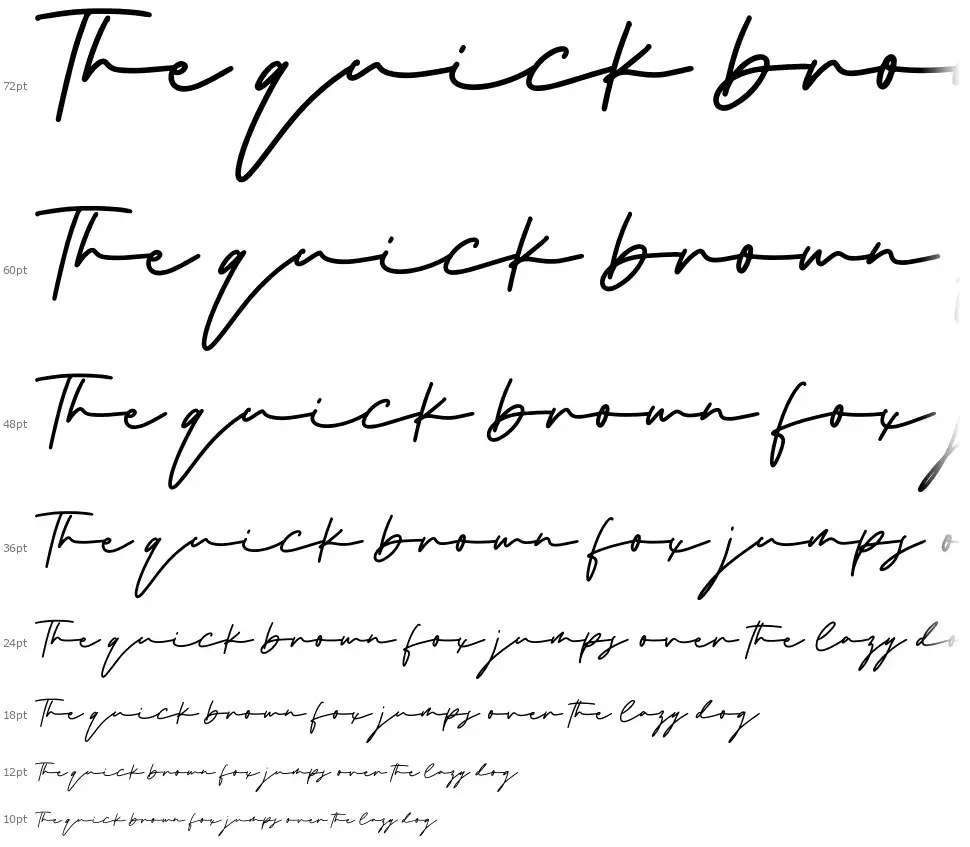 72pt The quick bro
60pt The quick brown
48pt The quick brown fox j
36pt The quick brown fox jumps o
24pt The quick brown fox jumps over the lazy do
18pt The quick brown fox jumps over the lazy dog
12pt The quick brown fox jumps over the lazy dog
10pt The quick brown fox jumps over the lazy dog